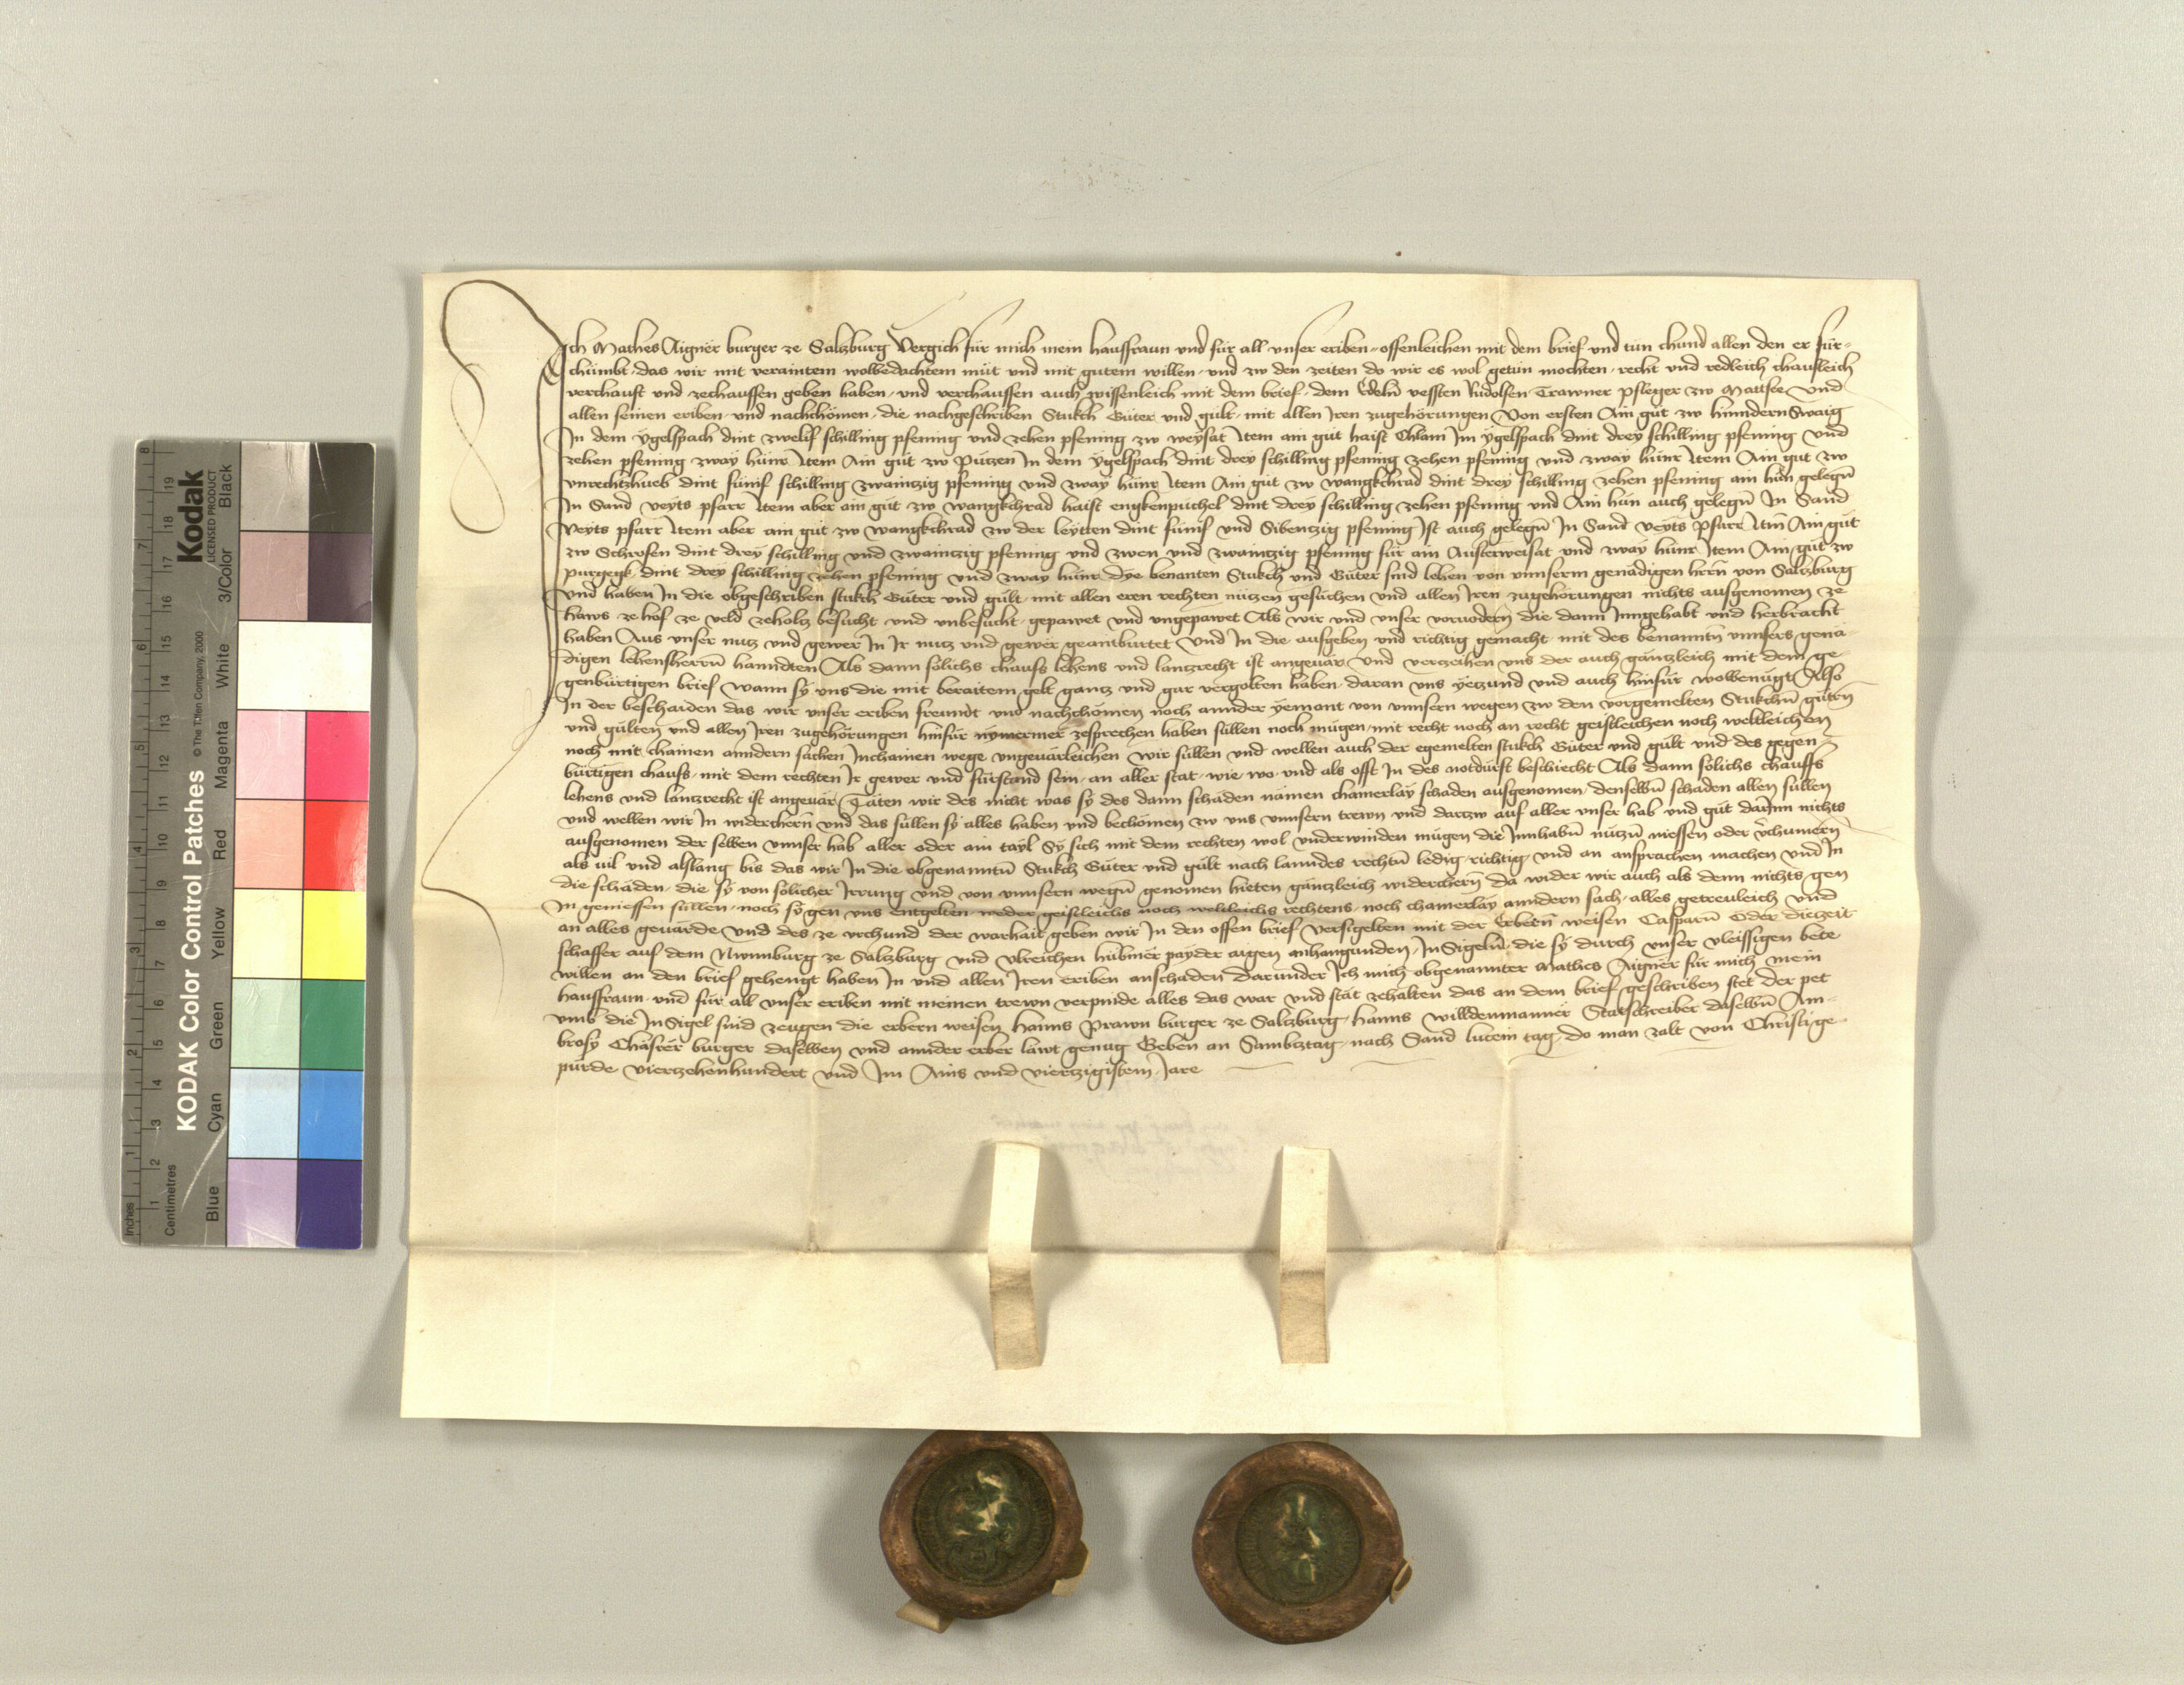 Ich Mathes Aigner burger ze Salzburg Vergich für mich mein hausfraun und für all unser eriben offenleichen mit dem brief und tün chund allen den er für-
chümbt das wir mit veraintem wolbedachtem müt und mit gutem willen und zw den zeiten do wir es wol getün mochten recht und redleich chaufleich
verchauft und zechauffen geben haben und verchauffen auch wissenleich mit dem brief dem Edeln vessten Rudolfen Trawner Pfleger zw Mattsee und
allen seinen eriben und nachchömen die nachgeschriben Stukch Güter und gült mit allen Iren zugehörungen Von ersten Ain güt zw hinndern Swaig
In dem ygelspach dint zwelif schilling pfening und zehen pfening zw weysat Item ain güt haist Chlam Im ygelspach dint drey schilling pfening und
zehen pfening zway hünr Item Ain güt zw Pützen In dem ygelspach dint drey schilling pfening zehen pfening und zway hünr Item Ain güt zw
unrechtzhueb dint fünif schilling zwaintzig pfening und zway hünr Item Ain güt zw wangkchrad dint drey schilling zehen pfening ain hün gelegn̄
In Sand veyts pfarr Item aber ain güt zw wangkchrad haist engkenpüchel dint drey schilling zehen pfening und Ain hün auch gelegn̄ In Sand
Veyts pfarr Item aber ain güt zw wangkchrad zw der leytten dint fünif und Sibentzig pfening Ist auch gelegn̄ In Sand veyts Pfarr Itm̄ Ain güt
zw Schrofen dint drey schilling und zwaintzig pfening und zwen und zwaintzig pfening für ain Austerweisat und zway hünr Item Ain güt zw
purgegk dint drey schilling zehen pfening und zway hünr Dye benanten Stukch und Güter sind lehen von unnserm genädigen hrrn̄ von Salczburg
und haben In die obgeschriben stukch Güter und gült mit allen eren rechten nützen gesüchen und allen Iren zugehörungen nichts ausgenomen ze
haws ze hof ze veld zeholtz besücht und unbesücht gepawet und ungepawet Als wir und unser vorvodern die dann Inngehabt und herbracht
haben Aus unser nutz und gewer In Ir nutz und gewer geantburtet und In die aufgeben und richtig gemacht mit des benanntn̄ unnsers genä-
digen lehensherrn̄ hanndten Als dann solichs chaufs lehens und lantzrecht ist angevär und verzeihen uns der auch gänzleich mit dem ge-
genbürtigen brief wann sy uns die mit beraitem gelt gantz und gar vergolten haben daran uns yetzund und auch hinfür wolbenügt Also
In der beschaiden das wir unser eriben freundt und nachchömen noch annder yemant von unnsern wegen zw den vorgemelten Stukchn̄ gütrn̄
und gülten und allen Iren zugehörungen hinfür nymermer zesprechen haben süllen noch mügen mit recht noch an recht geistleichen noch weltleichen
noch mit chainen anndern sachen Inchainen wege ungevärleichen wir süllen und wellen auch der egemelten stukch Güter und gült und des gegen-
bürtigen chaufs mit dem rechten Ir gewer und fürstand sein an aller stat wie wo und als offt In des notdürft beschiecht Als dann solichs chauffs
lehens und lantzrecht ist angevär Täten wir des nicht was sy des dann schaden nämen chamerlay schaden ausgenomen denselbn̄ schaden allen süllen
und wellen wir In widerchern̄ und das süllen sy alles haben und bechömen zw uns unnsern trewn und dartzw auf aller unser hab und güt darInn nichts
ausgenomen der selben unnser hab aller oder ain tayl Sy sich mit dem rechten wol underwinden mügen die Innhabn̄ nützn̄ niessen oder v̄chumern̄
als vil und alslang bis das wir In die obgenanntn̄ Stukch Güter und gült nach lanndes rechtn̄ ledig richtig und an ansprachen machen und In
die schäden die sy von solicher Irrung und von unnsern wegn̄ genomen hieten gänzleich widerchern̄ Da wider wir auch als denn nichts gen
In geniessen süllen noch sy gen uns entgelten weder geistleichs noch weltleichs rechtens noch chamerlay anndern sach alles getreuleich und
an alles gevärde Und des ze urchund der warhait geben wir In den offen brief versigelten mit der Erbern̄ weisen Casparn̄ Oder diezeit
schaffer auf dem Nunnburg ze Salzburg und Ulreichen hübmer payder aigen anhangunden InSigeln̄ die sy durch unser vleissigen bete
willen an den brief gehengt haben In und allen Iren eriben anschaden Darunder Ich mich obgenannter Mathes Aigner für mich mein
hausfraun und für all unser eriben mit meinen trewn verpinde alles das war und stät zehalten das an dem brief geschriben stet Der pet
umb die InSigel sind zeugen die erbern weisen hanns Prawn burger ze Salzburg hanns willdenmanner Statschreiber daselbn̄ Am-
brosy Chäsrer burger daselben und annder erber läwt genug Geben an Sambtztag nach Sand lucein tag do man zalt von Christi ge-
purde viertzehenhundert und Im Ains und viertzigistem Jare
KODAK Color Control Patches
© The Tiffen Company, 2000
Kodak
LICENSED PRODUCT
Inches
Centimetres
Blue Cyan Green Yellow Red Magenta White 3/Color Black